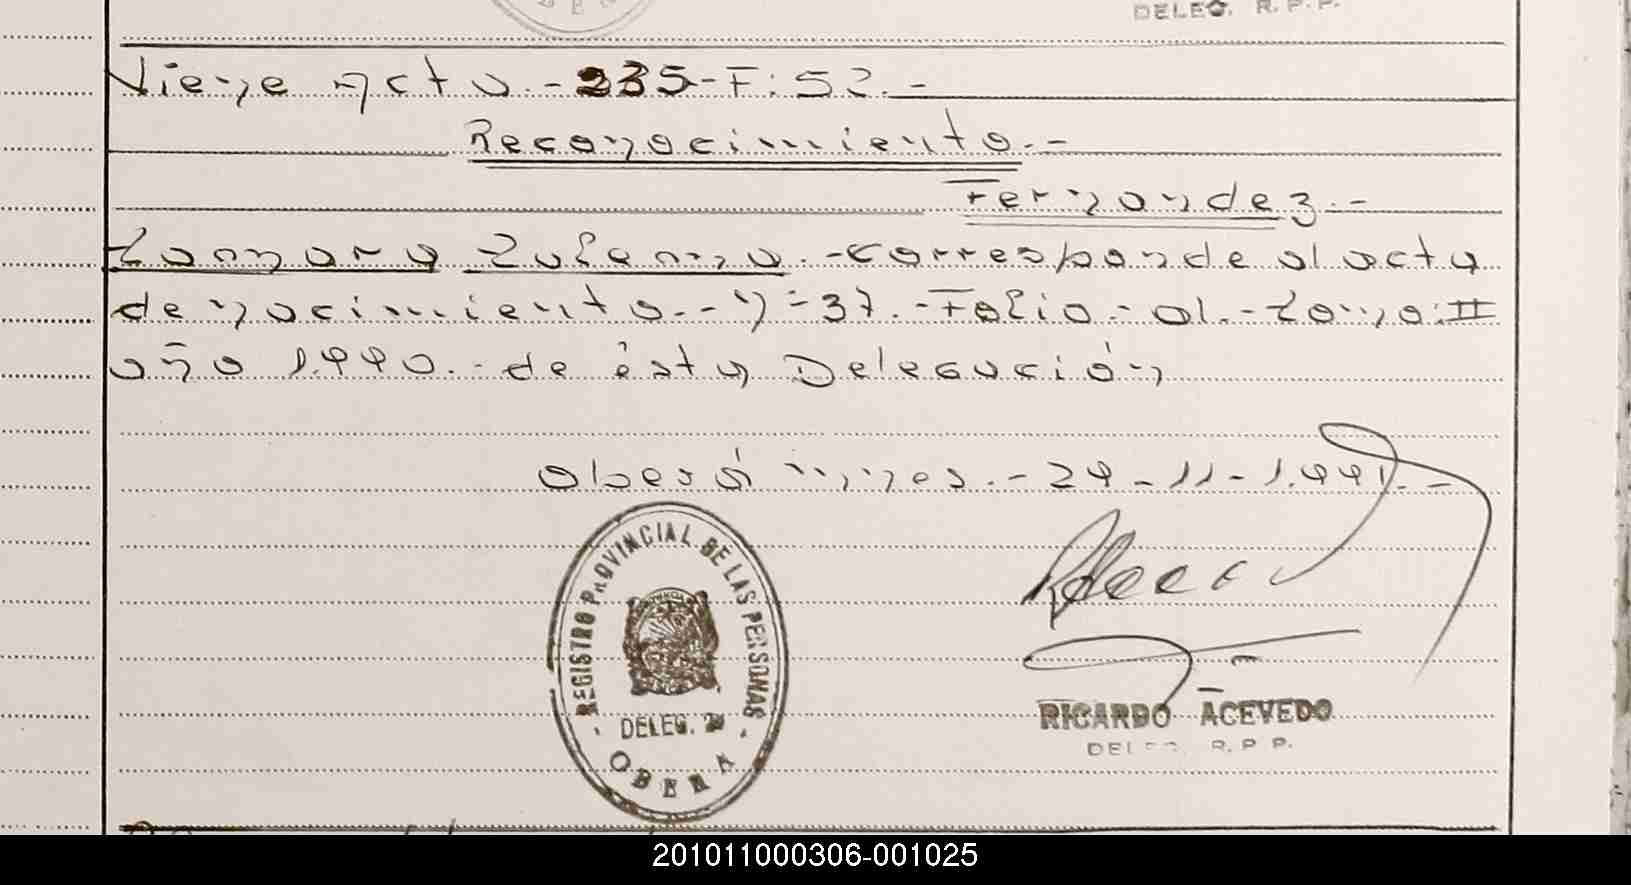 DELEG. R.P.P.
Viene Acta.-235-F:52.-
Reconocimiento.-
Fernandez.-
Tamara Zulema.-Corresponde al acta
de nacimiento.-N=37.-Folio-01.-Tomo:II
año 1.990.-de ésta Delegación
Oberá Mnes.-29-11-1.991.-
REGISTRO PROVINCIAL DE LAS PERSONAS
DELEG.
OBERA
RICARDO ACEVEDO
DELEG. R.P.P.
201011000306-001025